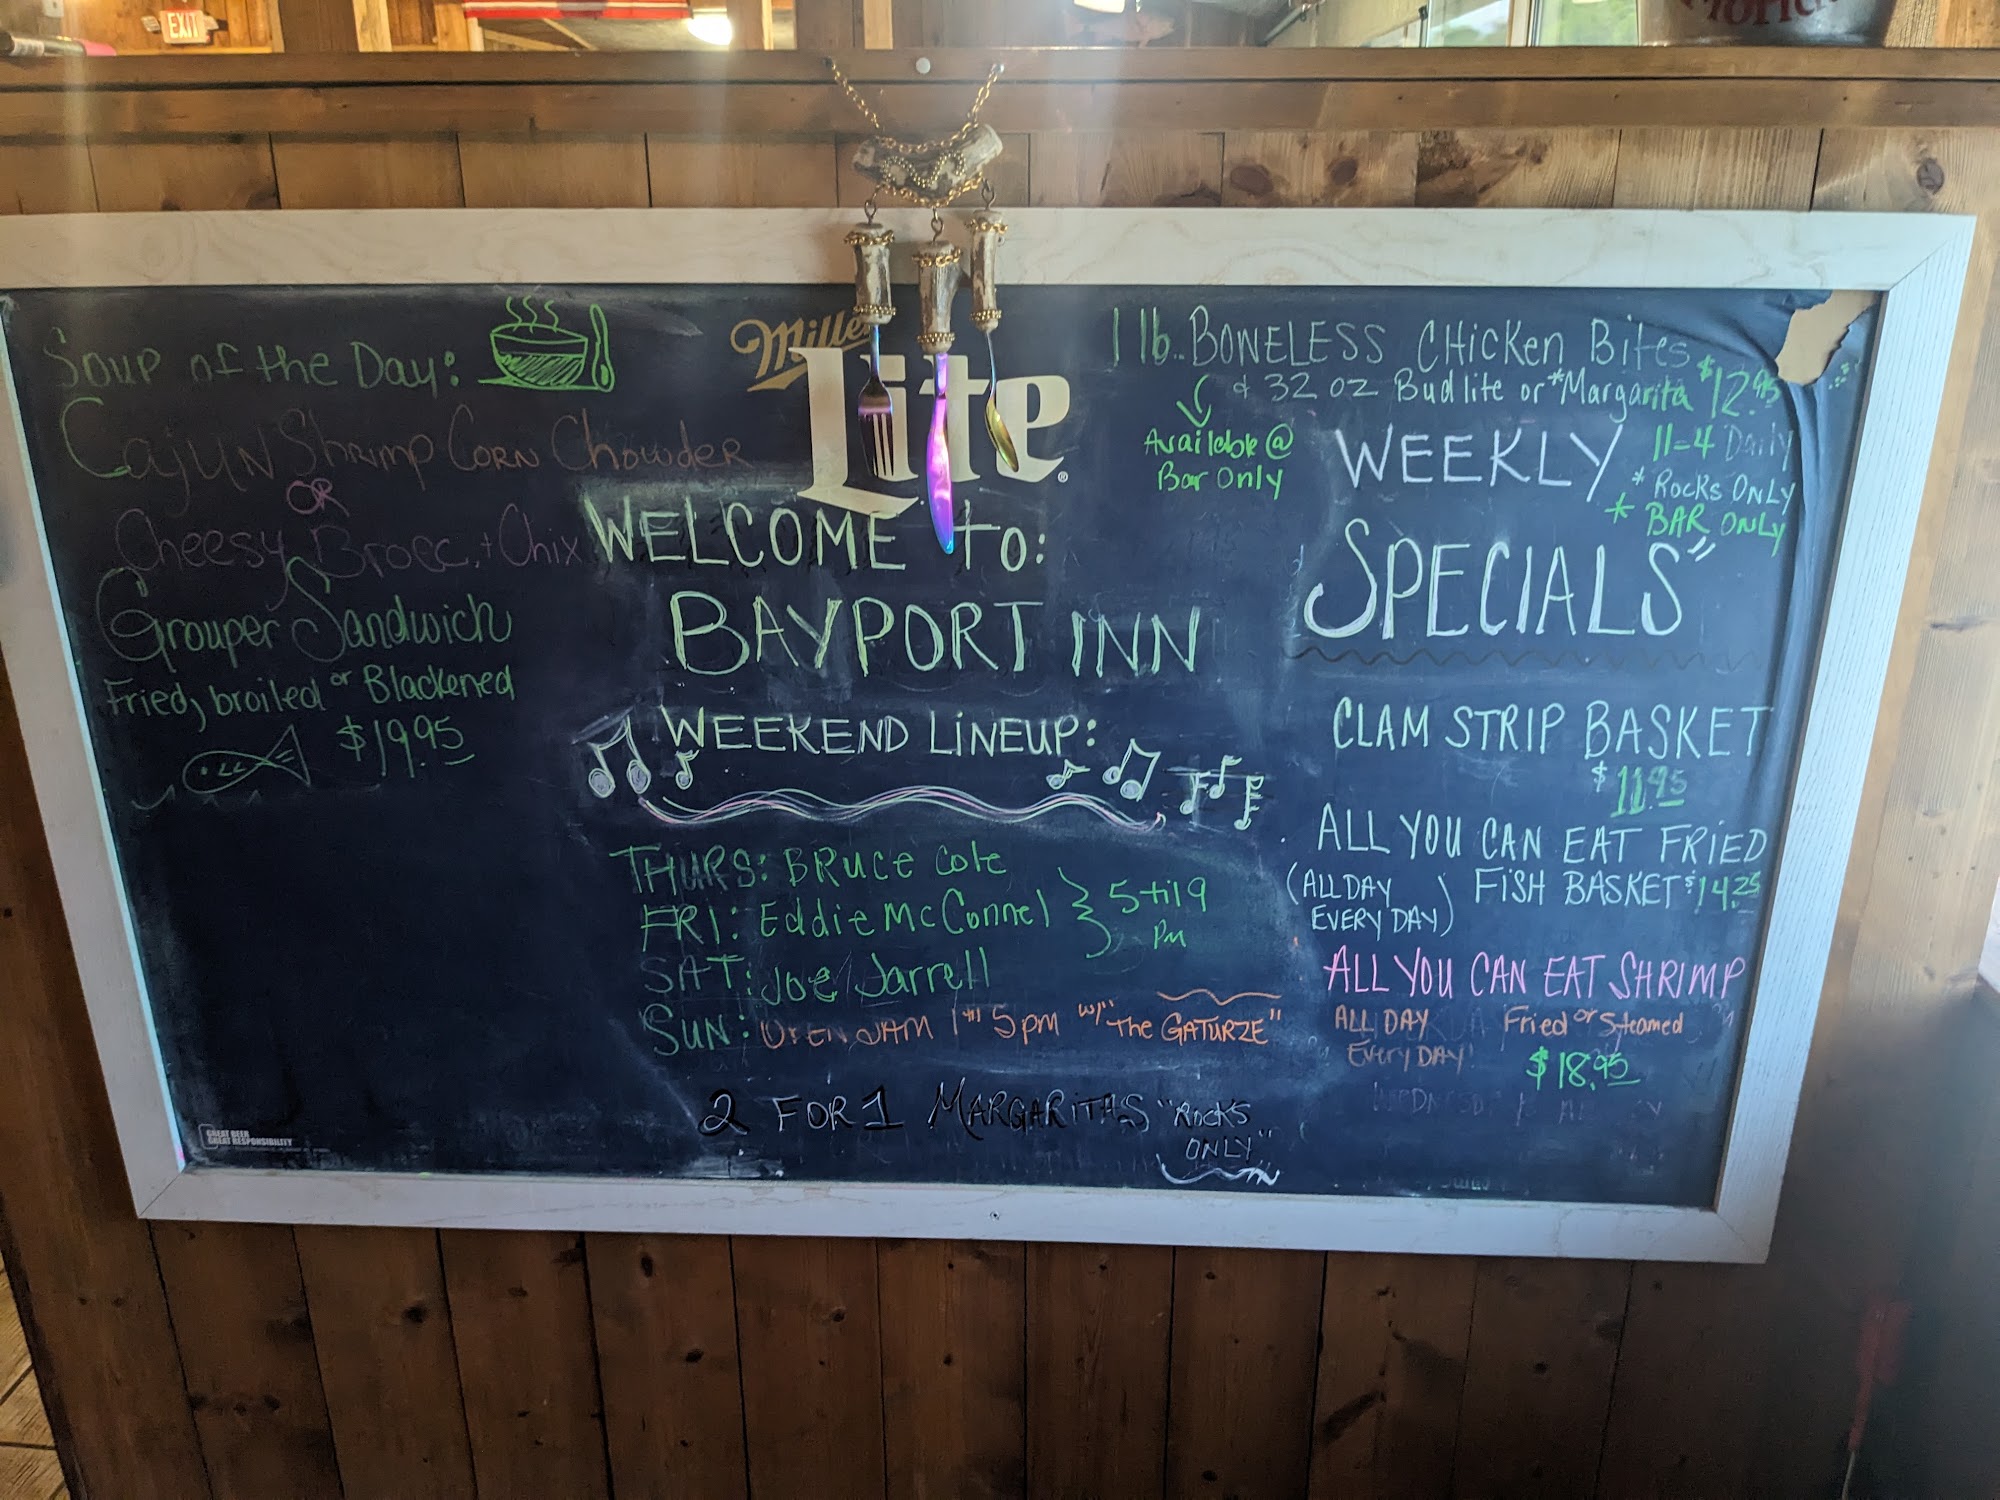 EXIT
Soup of the Day:
Cajun Shrimp Corn Chowder
OR
Cheesy Brocc. + Chix
Grouper Sandwich
Fried, broiled or Blackened
$19.95
GREAT BEER
GREAT RESPONSIBILITY
Miller
Lite
WELCOME to:
BAYPORT INN
WEEKEND LINEUP:
THURS: BRuce Cole
FRI: Eddie McConnel
SAT: Joe Jarrell
5 til 9
PM
SUN: OPEN JAM 1 til 5 pm w/ "The GATURZE"
2 FOR 1 MARGARITAS "ROCKS
ONLY"
1 lb. BONELESS CHicken Bites
& 32 oz Bud lite or *Margarita $12.95
Available @
Bar Only
11-4 Daily
* Rocks ONLY
* BAR ONLY
WEEKLY
SPECIALS"
CLAM STRIP BASKET
$11.95
ALL YOU CAN EAT FRIED
FISH BASKET $14.25
(ALL DAY
EVERY DAY)
ALL YOU CAN EAT SHRIMP
ALL DAY
EVERY DAY!
Fried or Steamed
$18.95